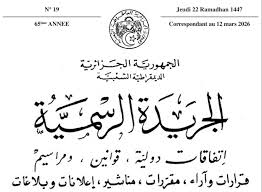 N° 19
Jeudi 22 Ramadhan 1447
65ème ANNEE
Correspondant au 12 mars 2026
الجمهورية الجزائرية
الديمقراطية الشعبية
الجريدة الرسمية
إتفاقات دولية ، قوانين ، ومراسيم
قرارات وآراء ، مقررات ، مناشير ، إعلانات وبلاغات